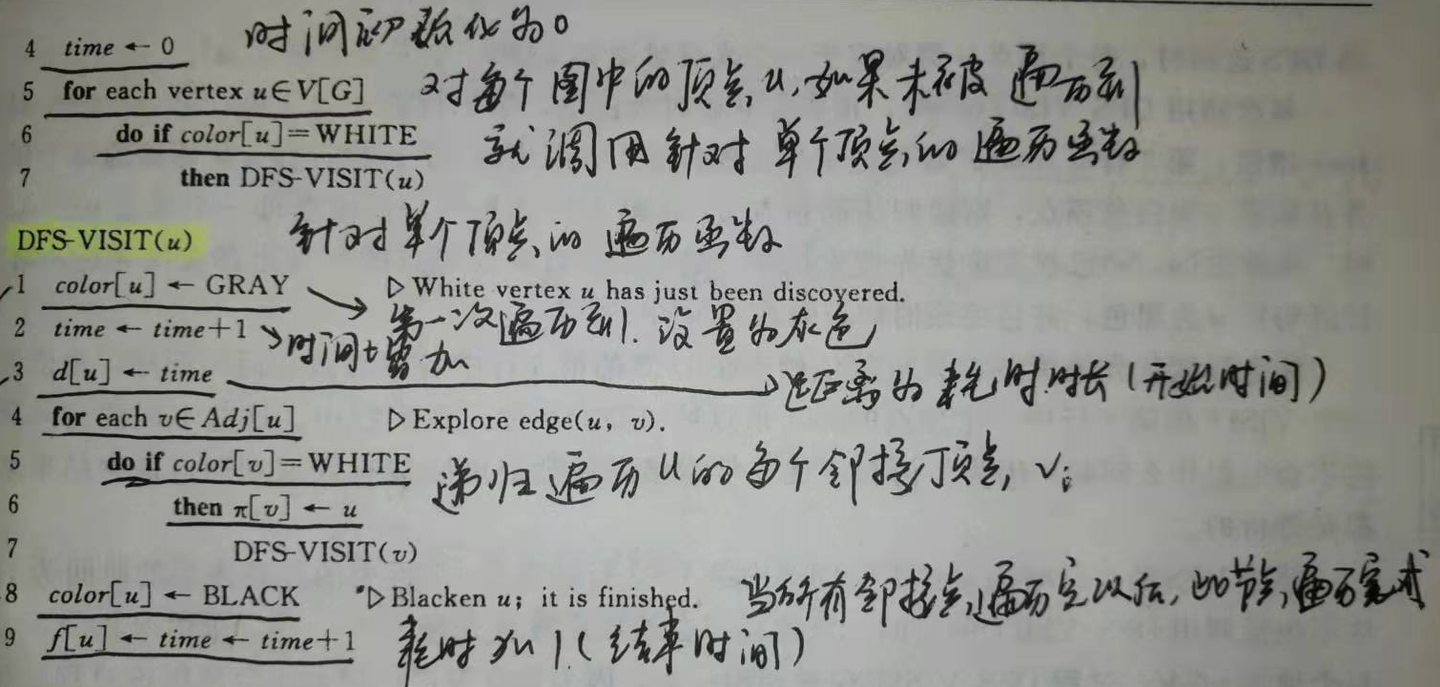 时间初始化为0
4 time ← 0
5 for each vertex u∈V[G] 对每个图中的顶点u,如果未被遍历到
6 do if color[u]=WHITE 就调用针对单个顶点的遍历函数
7 then DFS-VISIT(u)
DFS-VISIT(u) 针对单个顶点的遍历函数
1 color[u] ← GRAY ▷ White vertex u has just been discovered.
第一次遍历到.设置为灰色
2 time ← time+1 时间增加
3 d[u] ← time 距离为耗时时长(开始时间)
4 for each v∈Adj[u] ▷ Explore edge(u, v).
5 do if color[v]=WHITE 递归遍历u的每个邻接顶点v;
6 then π[v] ← u
7 DFS-VISIT(v)
8 color[u] ← BLACK ▷ Blacken u; it is finished. 当所有邻接点遍历完以后,此节点遍历完成
9 f[u] ← time ← time+1 耗时加1.(结束时间)